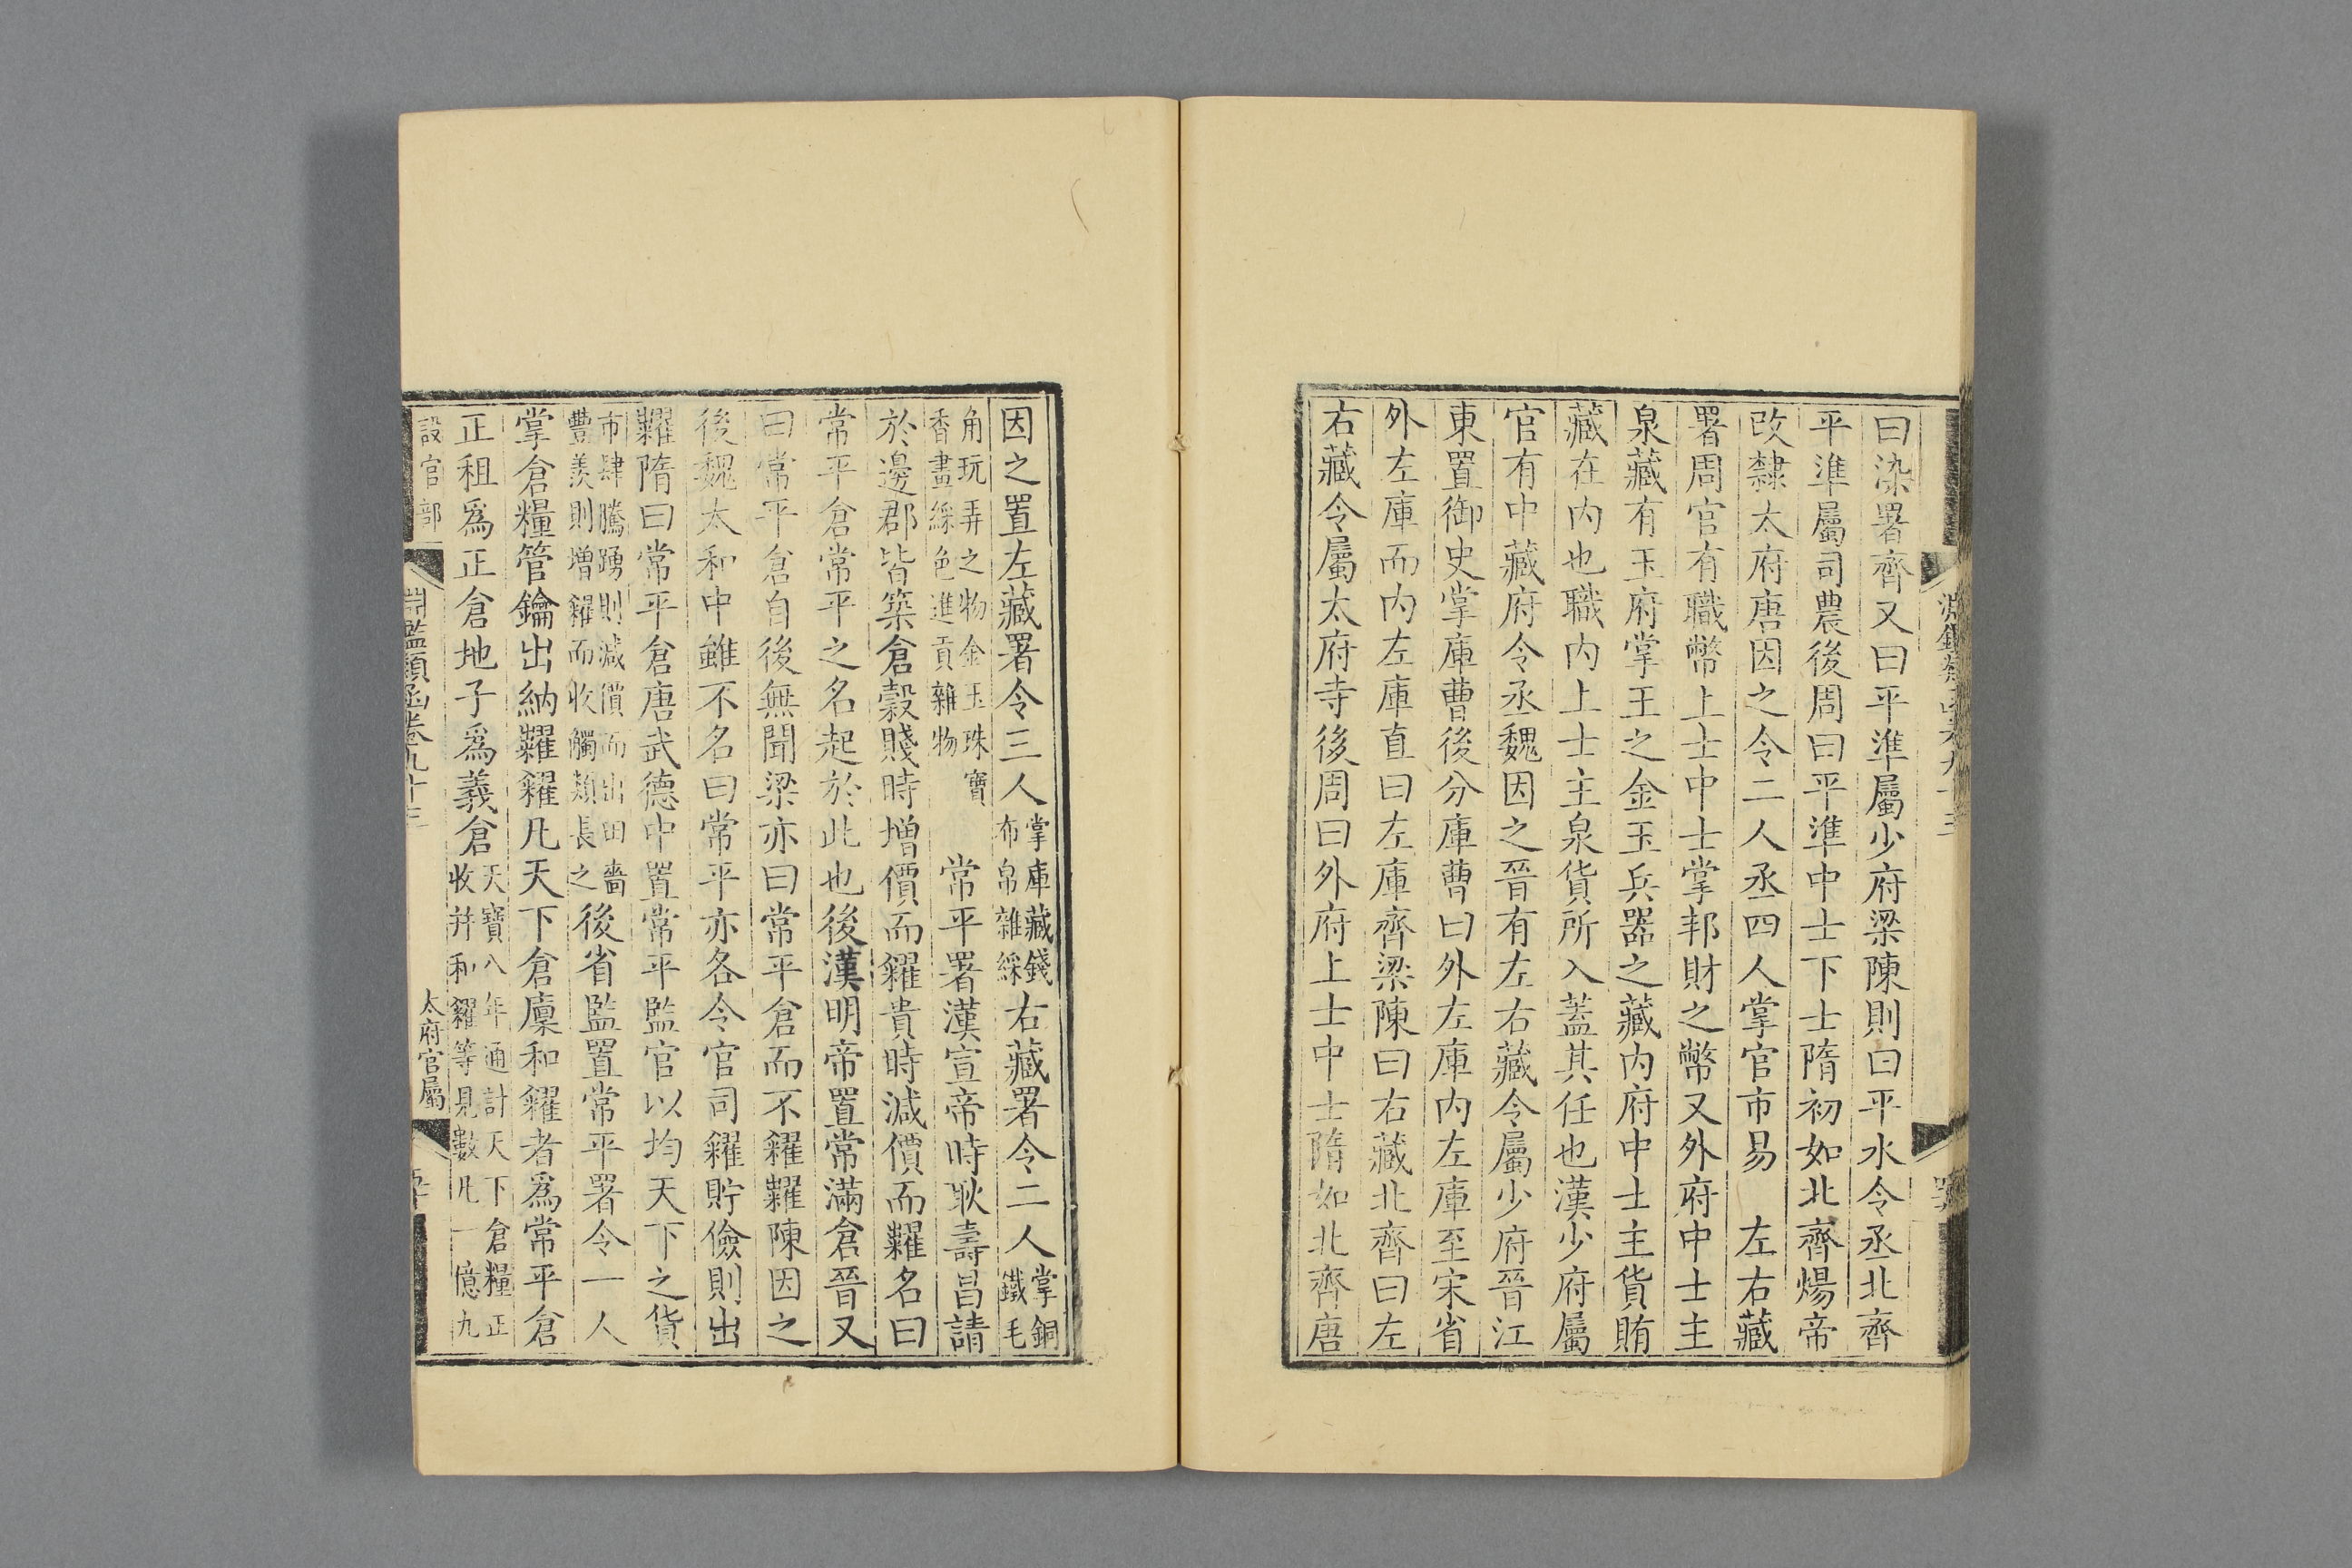 曰染署齊又曰平準屬少府梁陳則曰平水令丞北齊
平準屬司農後周曰平準中士下士隋初如北齊煬帝
改隸太府唐因之令二人丞四人掌官市易　左右藏
署周官有職幣上士中士掌邦財之幣又外府中士主
泉藏有玉府掌王之金玉兵器之藏内府中士主貨賄
藏在内也職内上士主泉貨所入蓋其任也漢少府屬
官有中藏府令丞魏因之晉有左右藏令屬少府晉江
東置御史掌庫曹後分庫曹曰外左庫内左庫至宋省
外左庫而内左庫直曰左庫齊梁陳曰右藏北齊曰左
右藏令屬太府寺後周曰外府上士中士隋如北齊唐
因之置左藏署令三人掌庫藏錢布帛雜綵右藏署令二人掌銅鐵毛
角玩弄之物金玉珠寶香畫綵色進貢雜物　常平署漢宣帝時耿壽昌請
於邊郡皆築倉穀賤時增價而糴貴時減價而糶名曰
常平倉常平之名起於此也後漢明帝置常滿倉晉又
曰常平倉自後無聞梁亦曰常平倉而不糴糶陳因之
後魏太和中雖不名曰常平亦各令官司糴貯儉則出
糶隋曰常平倉唐武德中置常平監官以均天下之貨
市肆騰踴則減價而出田嗇豐羡則增糴而收觸類長之後省監置常平署令一人
掌倉糧管鑰出納糶糴凡天下倉廩和糴者爲常平倉
正租爲正倉地子爲義倉天寶八年通計天下倉糧正收并和糴等見數凡一億九
設官部　淵鑑類函卷九十三　太府官屬